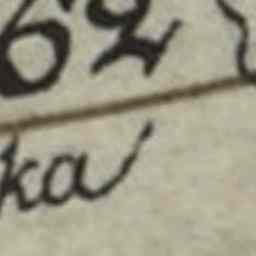 62
ka